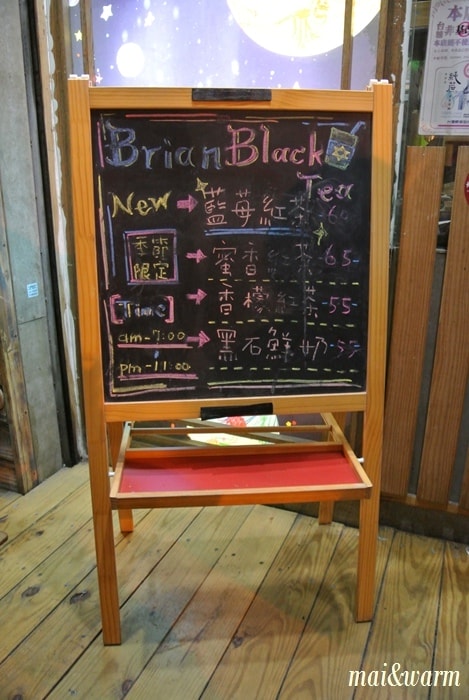 Brian Black
Tea
New 藍苺紅茶 60
季節
限定
蜜香紅茶 65-
香檬紅茶 -55-
[Time]
am-7:00
黑石鮮奶-55-
pm-11:00
mai&warm